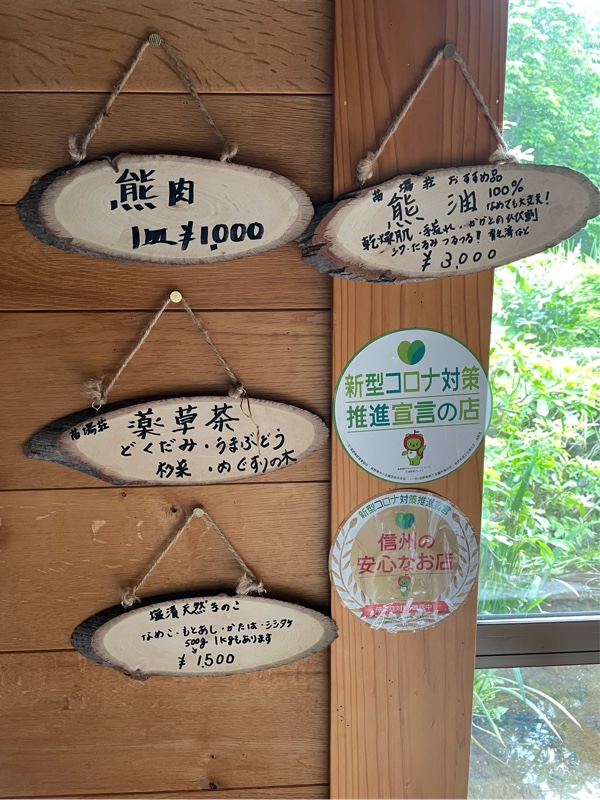 熊肉
1皿¥1,000
苗場荘 おすすめ品
熊油 100%
なめても大丈夫!
乾燥肌・手荒れ・かかとのひび割
シワ・たるみ つるつる!
¥3,000
苗場荘 薬草茶
どくだみ・うまぶどう
・めぐすりの木
塩漬天然きのこ
なめこ・もとあし・かたは・シシタケ
500g 1kgもあります
¥1,500
新型コロナ対策
推進宣言の店
新型コロナ対策推進宣言
信州の
安心なお店